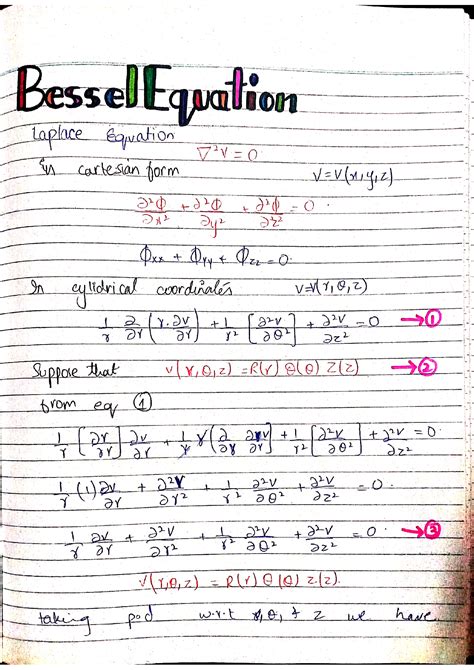 Bessel Equation
Laplace Equation
∇²V = 0
In cartesian form V = V(x,y,z)
∂²Φ/∂x² + ∂²Φ/∂y² + ∂²Φ/∂z² = 0
Φxx + Φyy + Φzz = 0
In cylidrical coordinates V=V(r,θ,z)
1/r ∂/∂r (r.∂V/∂r) + 1/r² [∂²V/∂θ²] + ∂²V/∂z² = 0 → ①
Suppose that V(r,θ,z) = R(r) Θ(θ) Z(z) → ②
from eq ①
1/r [∂r/∂r] ∂v/∂r + 1/r r (∂/∂r ∂v/∂r) + 1/r² [∂²V/∂θ²] + ∂²V/∂z² = 0
1/r (1) ∂v/∂r + ∂²V/∂r² + 1/r² ∂²V/∂θ² + ∂²V/∂z² = 0
1/r ∂v/∂r + ∂²V/∂r² + 1/r² ∂²V/∂θ² + ∂²V/∂z² = 0 → ③
V(r,θ,z) = R(r) Θ(θ) Z(z).
taking pod w.r.t r,θ, + z we have